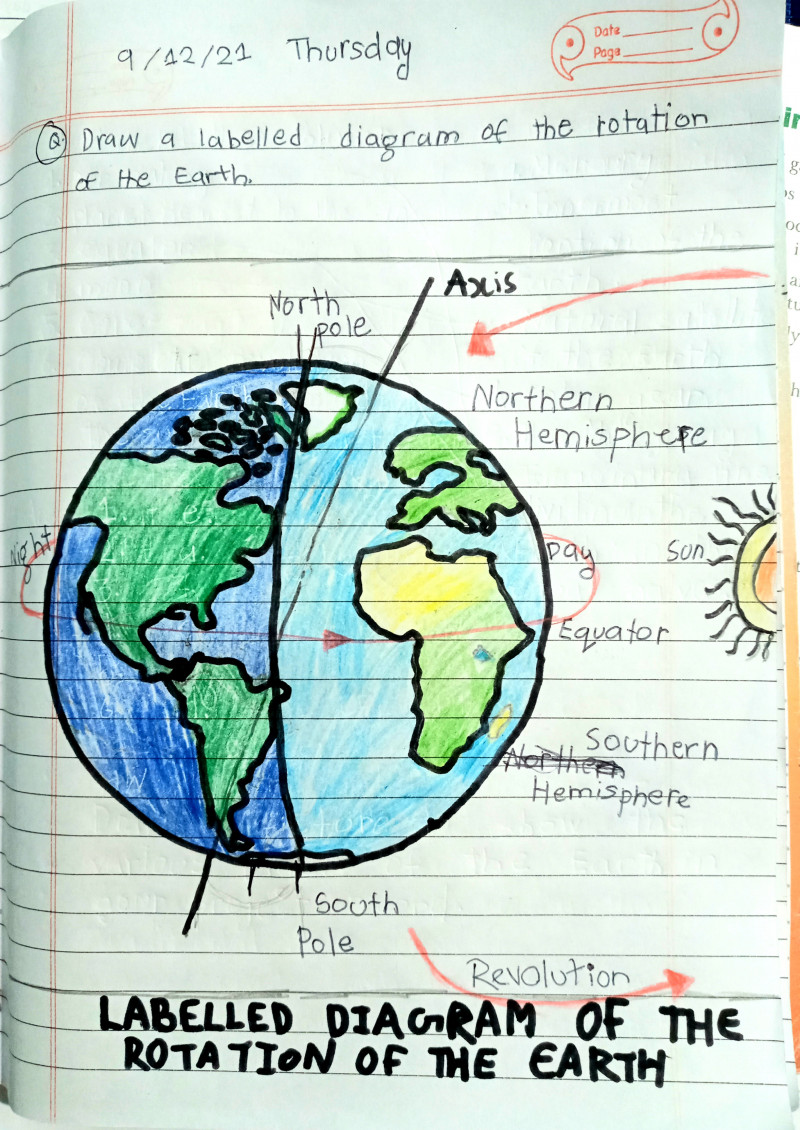 Date
Page
9/12/21 Thursday
Q. Draw a labelled diagram of the rotation
of the Earth.
Axis
North
pole
Northern
Hemisphere
Night
Day
Sun
Equator
Southern
Northern
Hemisphere
South
Pole
Revolution
LABELLED DIAGRAM OF THE
ROTATION OF THE EARTH